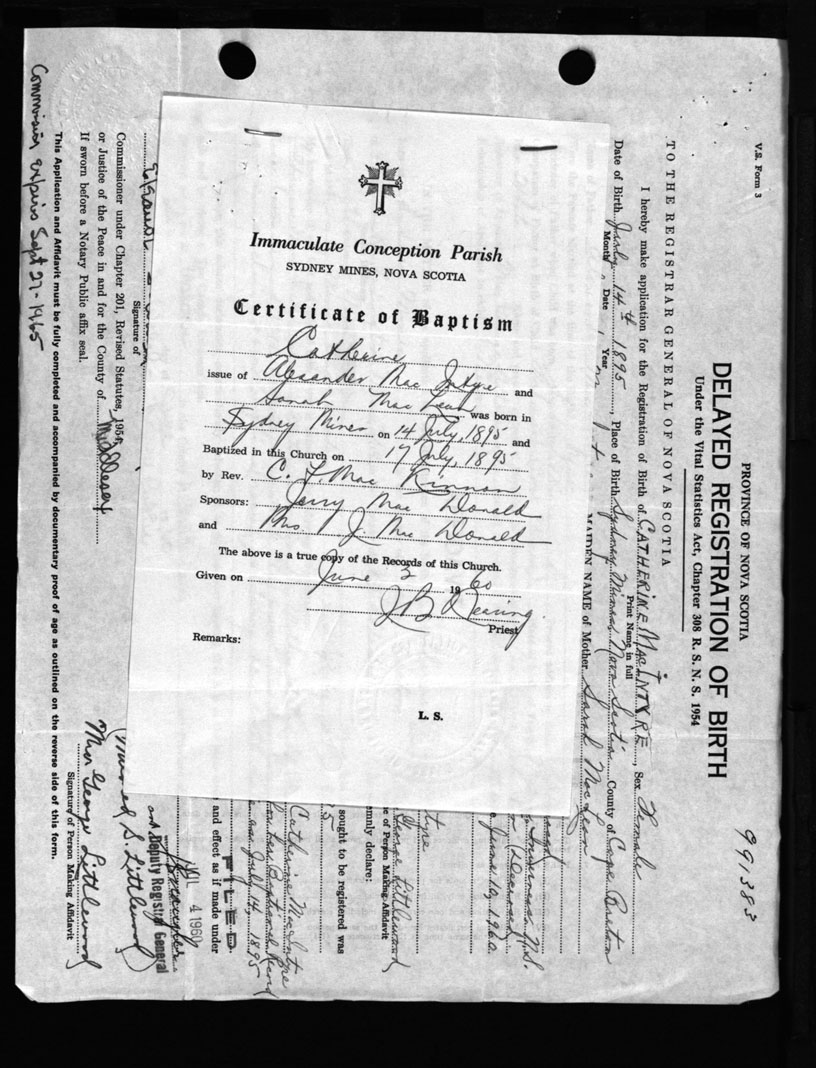 Immaculate Conception Parish
SYDNEY MINES, NOVA SCOTIA
Certificate of Baptism
Catherine
issue of Alexander Mac Intyre and
Sarah Mac Lean was born in
Sydney Mines on 14 July, 1895 and
Baptized in this Church on 17 July, 1895
by Rev. C. F. Mac Kinnon
Sponsors: Jerry Mac Donald
and Mrs. J Mc Donald
The above is a true copy of the Records of this Church.
Given on June 2 1960
J B Dearing
Priest
Remarks:
L. S.
V.S. Form 3
991383
PROVINCE OF NOVA SCOTIA
DELAYED REGISTRATION OF BIRTH
Under the Vital Statistics Act, Chapter 308 R. S. N. S. 1954
TO THE REGISTRAR GENERAL OF NOVA SCOTIA
I hereby make application for the Registration of Birth of CATHERINE MACINTYRE, Sex Female
Print Name in full
Date of Birth July 14th 1895, Place of Birth Sydney Mines Nova Scotia County of Cape Breton
Month Date Year
MAIDEN NAME of Mother Sarah MacLean
Inverness N.S.
(Deceased)
June 10, 1960
tyre
George Littlewood
e of Person Making Affidavit
mnly declare:
sought to be registered was
5
Catherine MacIntyre
her Baptismal Record
as July 14, 1895
and effect as if made under
FILED
JUL 4 1960
and Deputy Registrar General
S. Littlewood)
Mrs George Littlewood
Signature of Person Making Affidavit
Signature of
Commissioner under Chapter 201, Revised Statutes, 1954,
or Justice of the Peace in and for the County of Middlesex
If sworn before a Notary Public affix seal.
This Application and Affidavit must be fully completed and accompanied by documentary proof of age as outlined on the reverse side of this form.
Commission expires Sept 27-1965